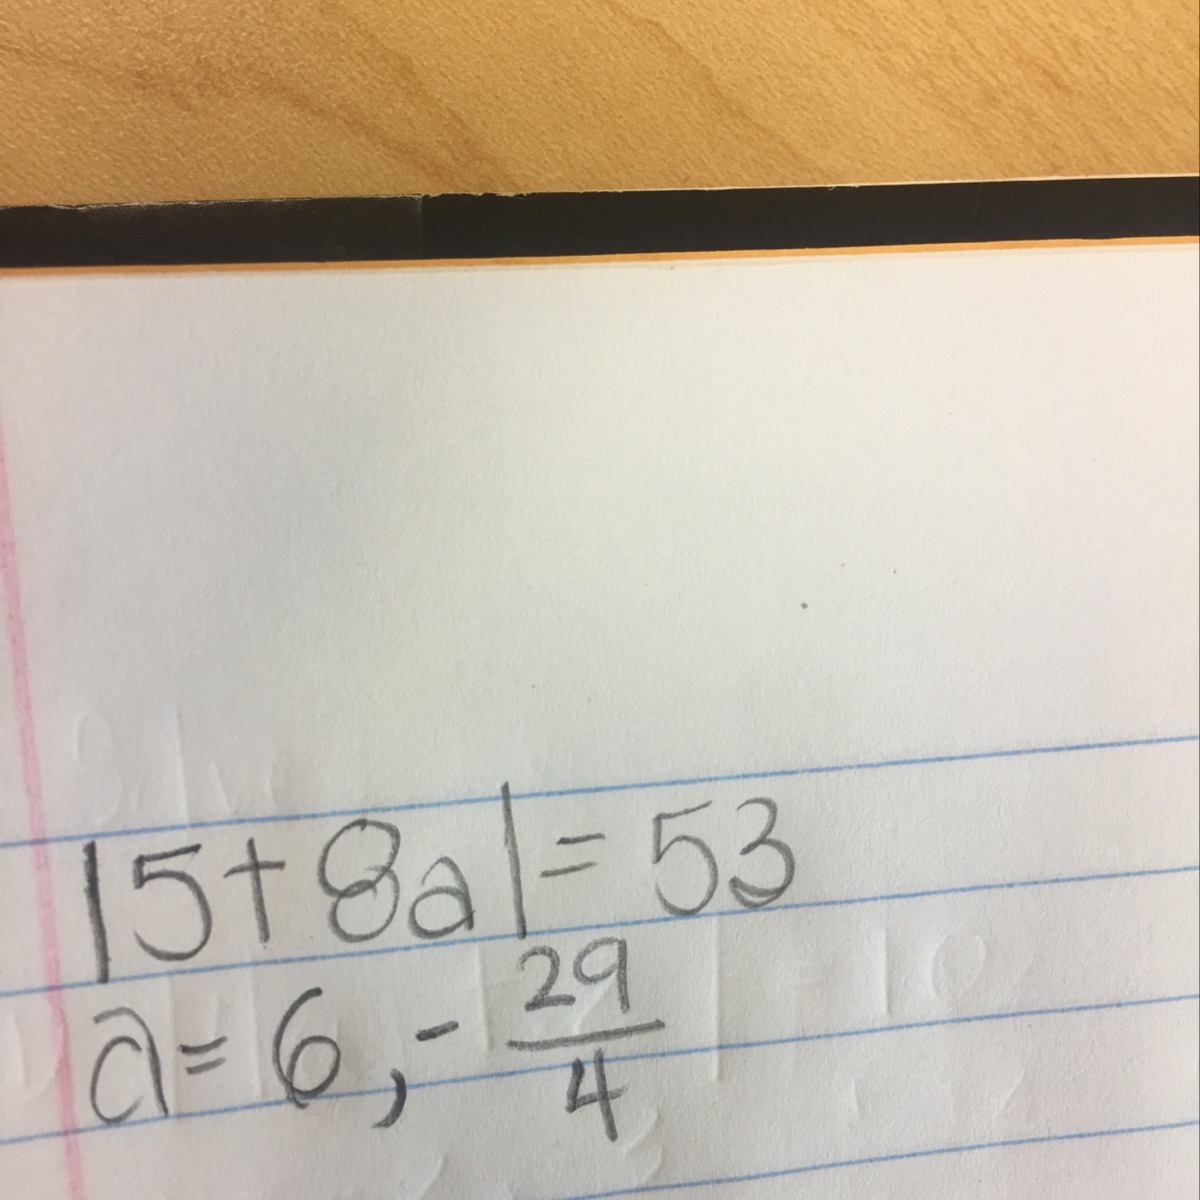 |5+8a|=53
a=6,-29/4